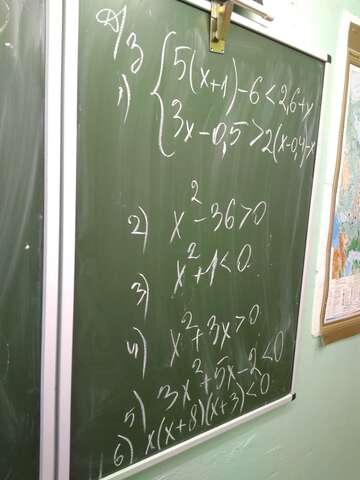 Д/З
1) { 5(x+1)-6<2,6+x
3x-0,5>2(x-0,4)-x
2) x²-36>0
3) x²+1<0
4) x²+3x>0
5) 3x²+5x-2<0
6) x(x+8)(x+3)<0